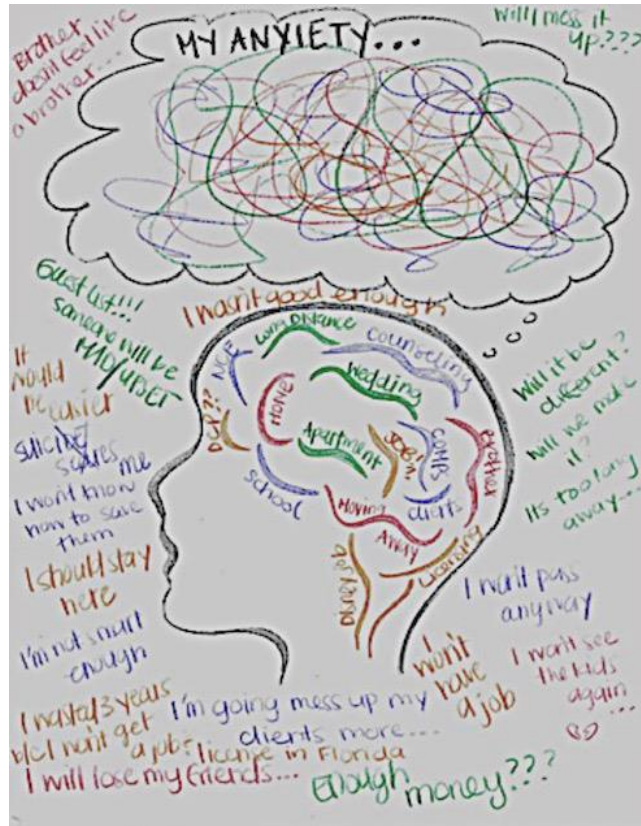 MY ANXIETY...
Brother
doesn't feel like
a brother...
Will I mess it
up???
Guest list!!!
someone will be
MAD/UPSET
I wasn't good enough
It
would
be easier
suicide
scares me
I won't know
how to save
them
I should stay
here
I'm not smart
enough
I wasted 3 years
b/c I won't get
a job & license in Florida
I will lose my friends...
I'm going mess up my
clients more...
Enough
money???
I
won't
have
a job
I won't see
the kids
again
...
I won't pass
anyway
Will it be
different?
Will we make
it?
Its too long
away...
NCE
Long Distance
Counseling
Wedding
Money
DCP??
Apartment
JOB!!
COMPS
Brother
School
clients
Moving
Away
Licensing
Disney Job